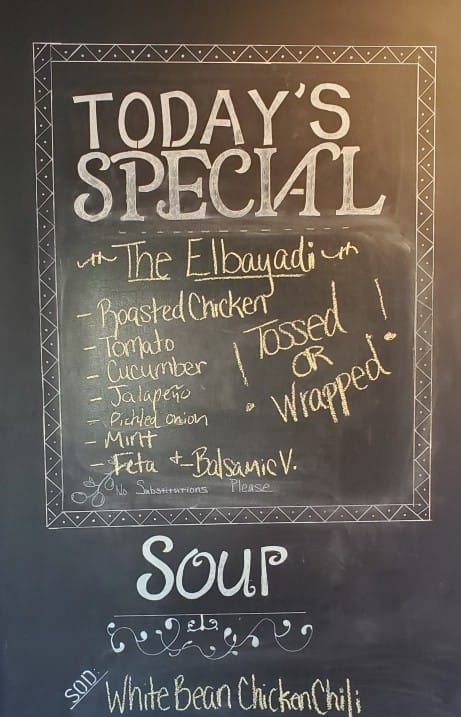 TODAY'S
SPECIAL
The Elbayadi
- Roasted Chicken
- Tomato
- Cucumber
- Jalapeño
- Pickled onion
- Mint
- Feta + - Balsamic V.
! Tossed !
OR
• Wrapped •
No Substitutions Please
SOUP
SOD: White Bean Chicken Chili